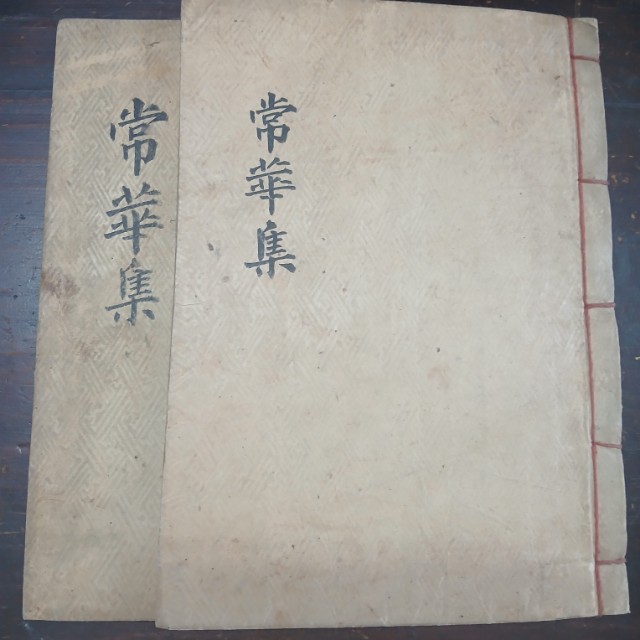 常華集
常華集